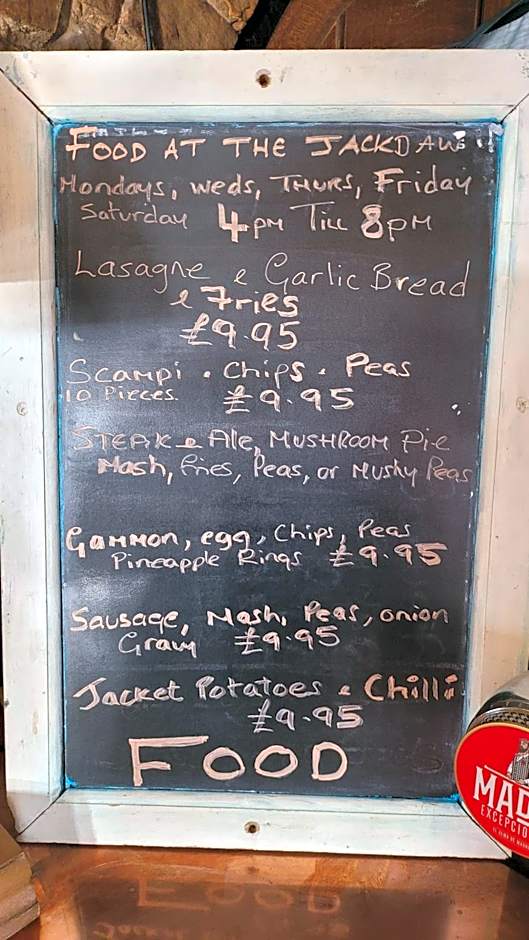 FOOD AT THE JACKDAW
Mondays, weds, THURS, Friday
Saturday 4pm Till 8pm
Lasagne & Garlic Bread
& Fries
£9.95
Scampi . Chips . Peas
10 Pieces. £9.95
STEAK & Ale, MUSHROOM Pie
Mash, fries, Peas, or Mushy Peas
Gammon, egg, Chips, Peas
Pineapple Rings £9.95
Sausage, Mash, Peas, onion
Gravy £9.95
Jacket Potatoes & Chilli
£9.95
FOOD
MAD
EXCEPCIO